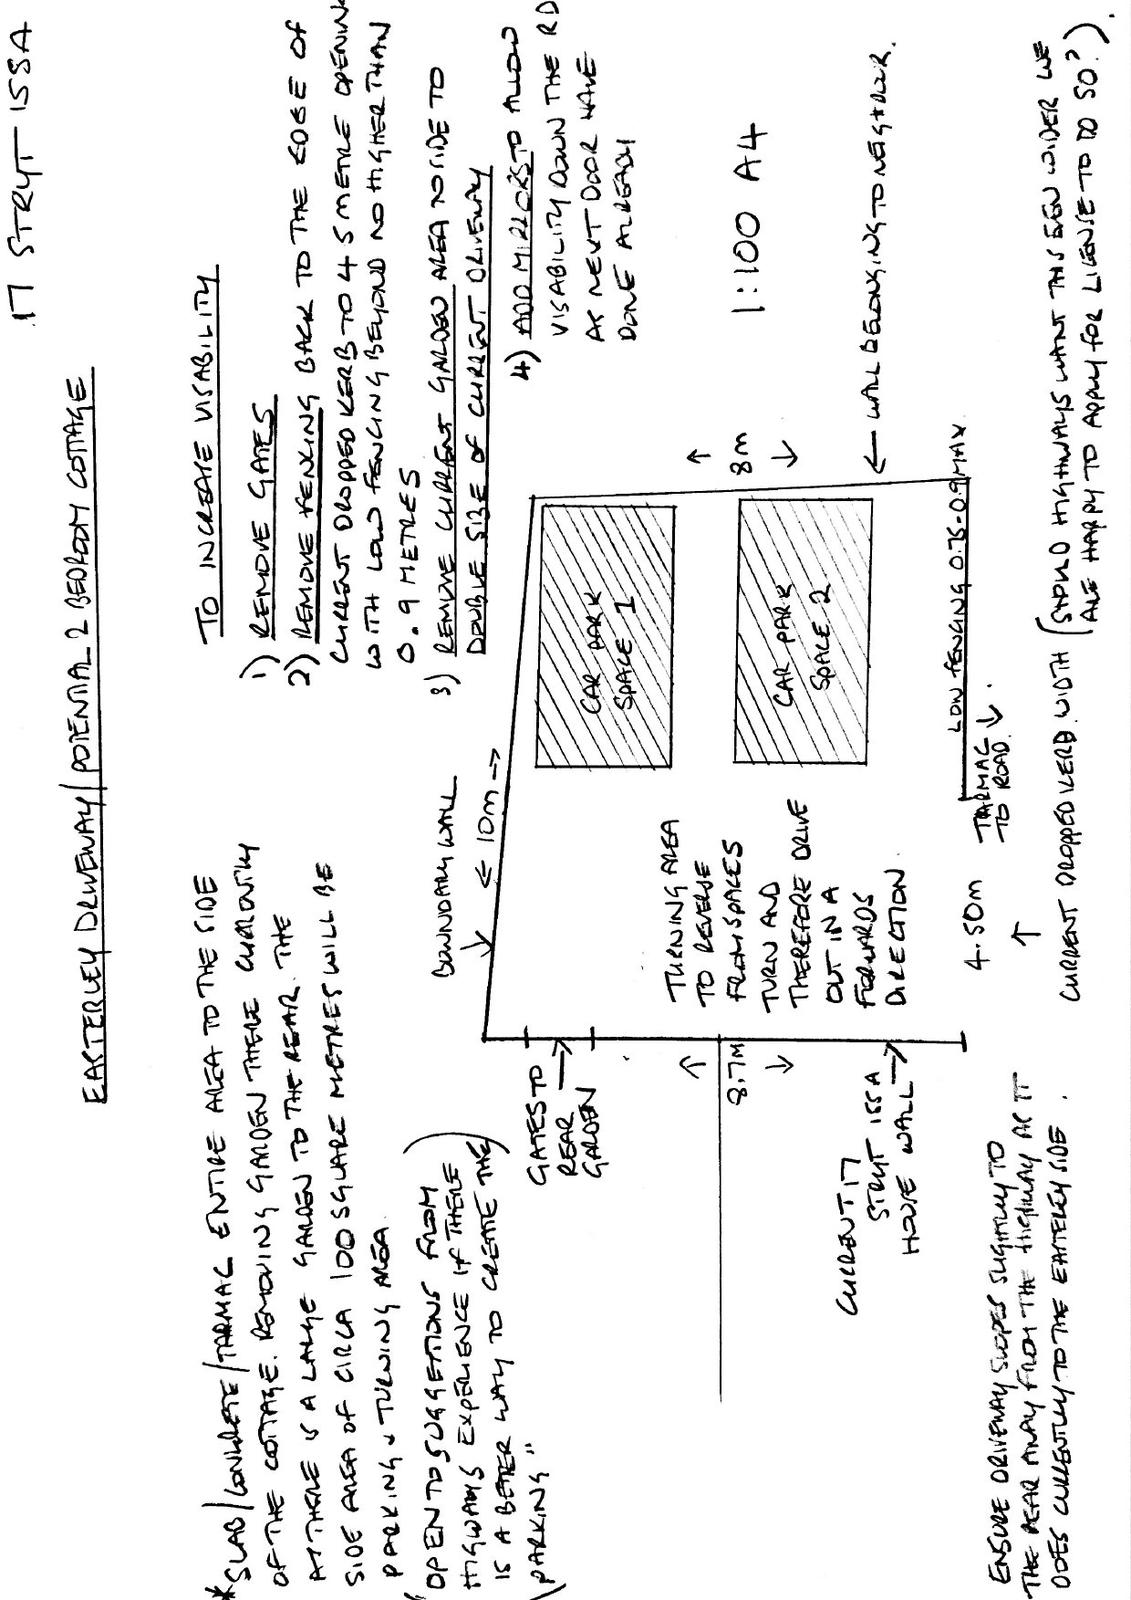 17 STRYT ISSA
EASTERLEY DRIVEWAY/POTENTIAL 2 BEDROOM COTTAGE
* SLAB/CONCRETE/TARMAC ENTIRE AREA TO THE SIDE
OF THE COTTAGE. REMOVING GARDEN THERE CURRENTLY
AS THERE IS A LARGE GARDEN TO THE REAR. THE
SIDE AREA OF CIRCA 100 SQUARE METRES WILL BE
PARKING & TURNING AREA.
"OPEN TO SUGGETIONS FROM
HIGWAYS EXPERIENCE IF THERE
IS A BETTER WAY TO CREATE THE
PARKING"
TO INCREASE VISABILITY
1) REMOVE GATES
2) REMOVE FENCING BACK TO THE EDGE OF
CURRENT DROPPED KERB TO 4.5 METRE OPENING
WITH LOW FENCING BEYOND NO HIGHER THAN
0.9 METRES
3) REMOVE CURRENT GARDEN AREA TO SIDE TO
DOUBLE SIZE OF CURRENT DRIVEWAY
4) ADD MIRRORS TO ALLOW
VISABILITY DOWN THE RD
AS NEXT DOOR HAVE
DONE ALREADY
1:100 A4
BOUNDARY WALL
← 10m →
GATES TO
REAR
GARDEN
CAR PARK
SPACE 1
CAR PARK
SPACE 2
8m
← WALL BELONGING TO NEIGHBOUR.
TURNING AREA
TO REVERSE
FROM SPACES
TURN AND
THEREFORE DRIVE
OUT IN A
FORWARDS
DIRECTION.
8.7M
CURRENT 17
STRYT ISSA
HOUSE WALL
LOW FENCING 0.75-0.9 MAX
4.50m
TARMAC
TO ROAD.
CURRENT DROPPED KERB WIDTH (SHOULD HIGHWAYS WANT THIS EVEN WIDER WE
ARE HAPPY TO APPLY FOR LICENSE TO DO SO?).
ENSURE DRIVEWAY SLOPES SLIGHTLY TO
THE REAR AWAY FROM THE HIGHWAY AS IT
DOES CURRENTLY TO THE EASTERLEY SIDE.